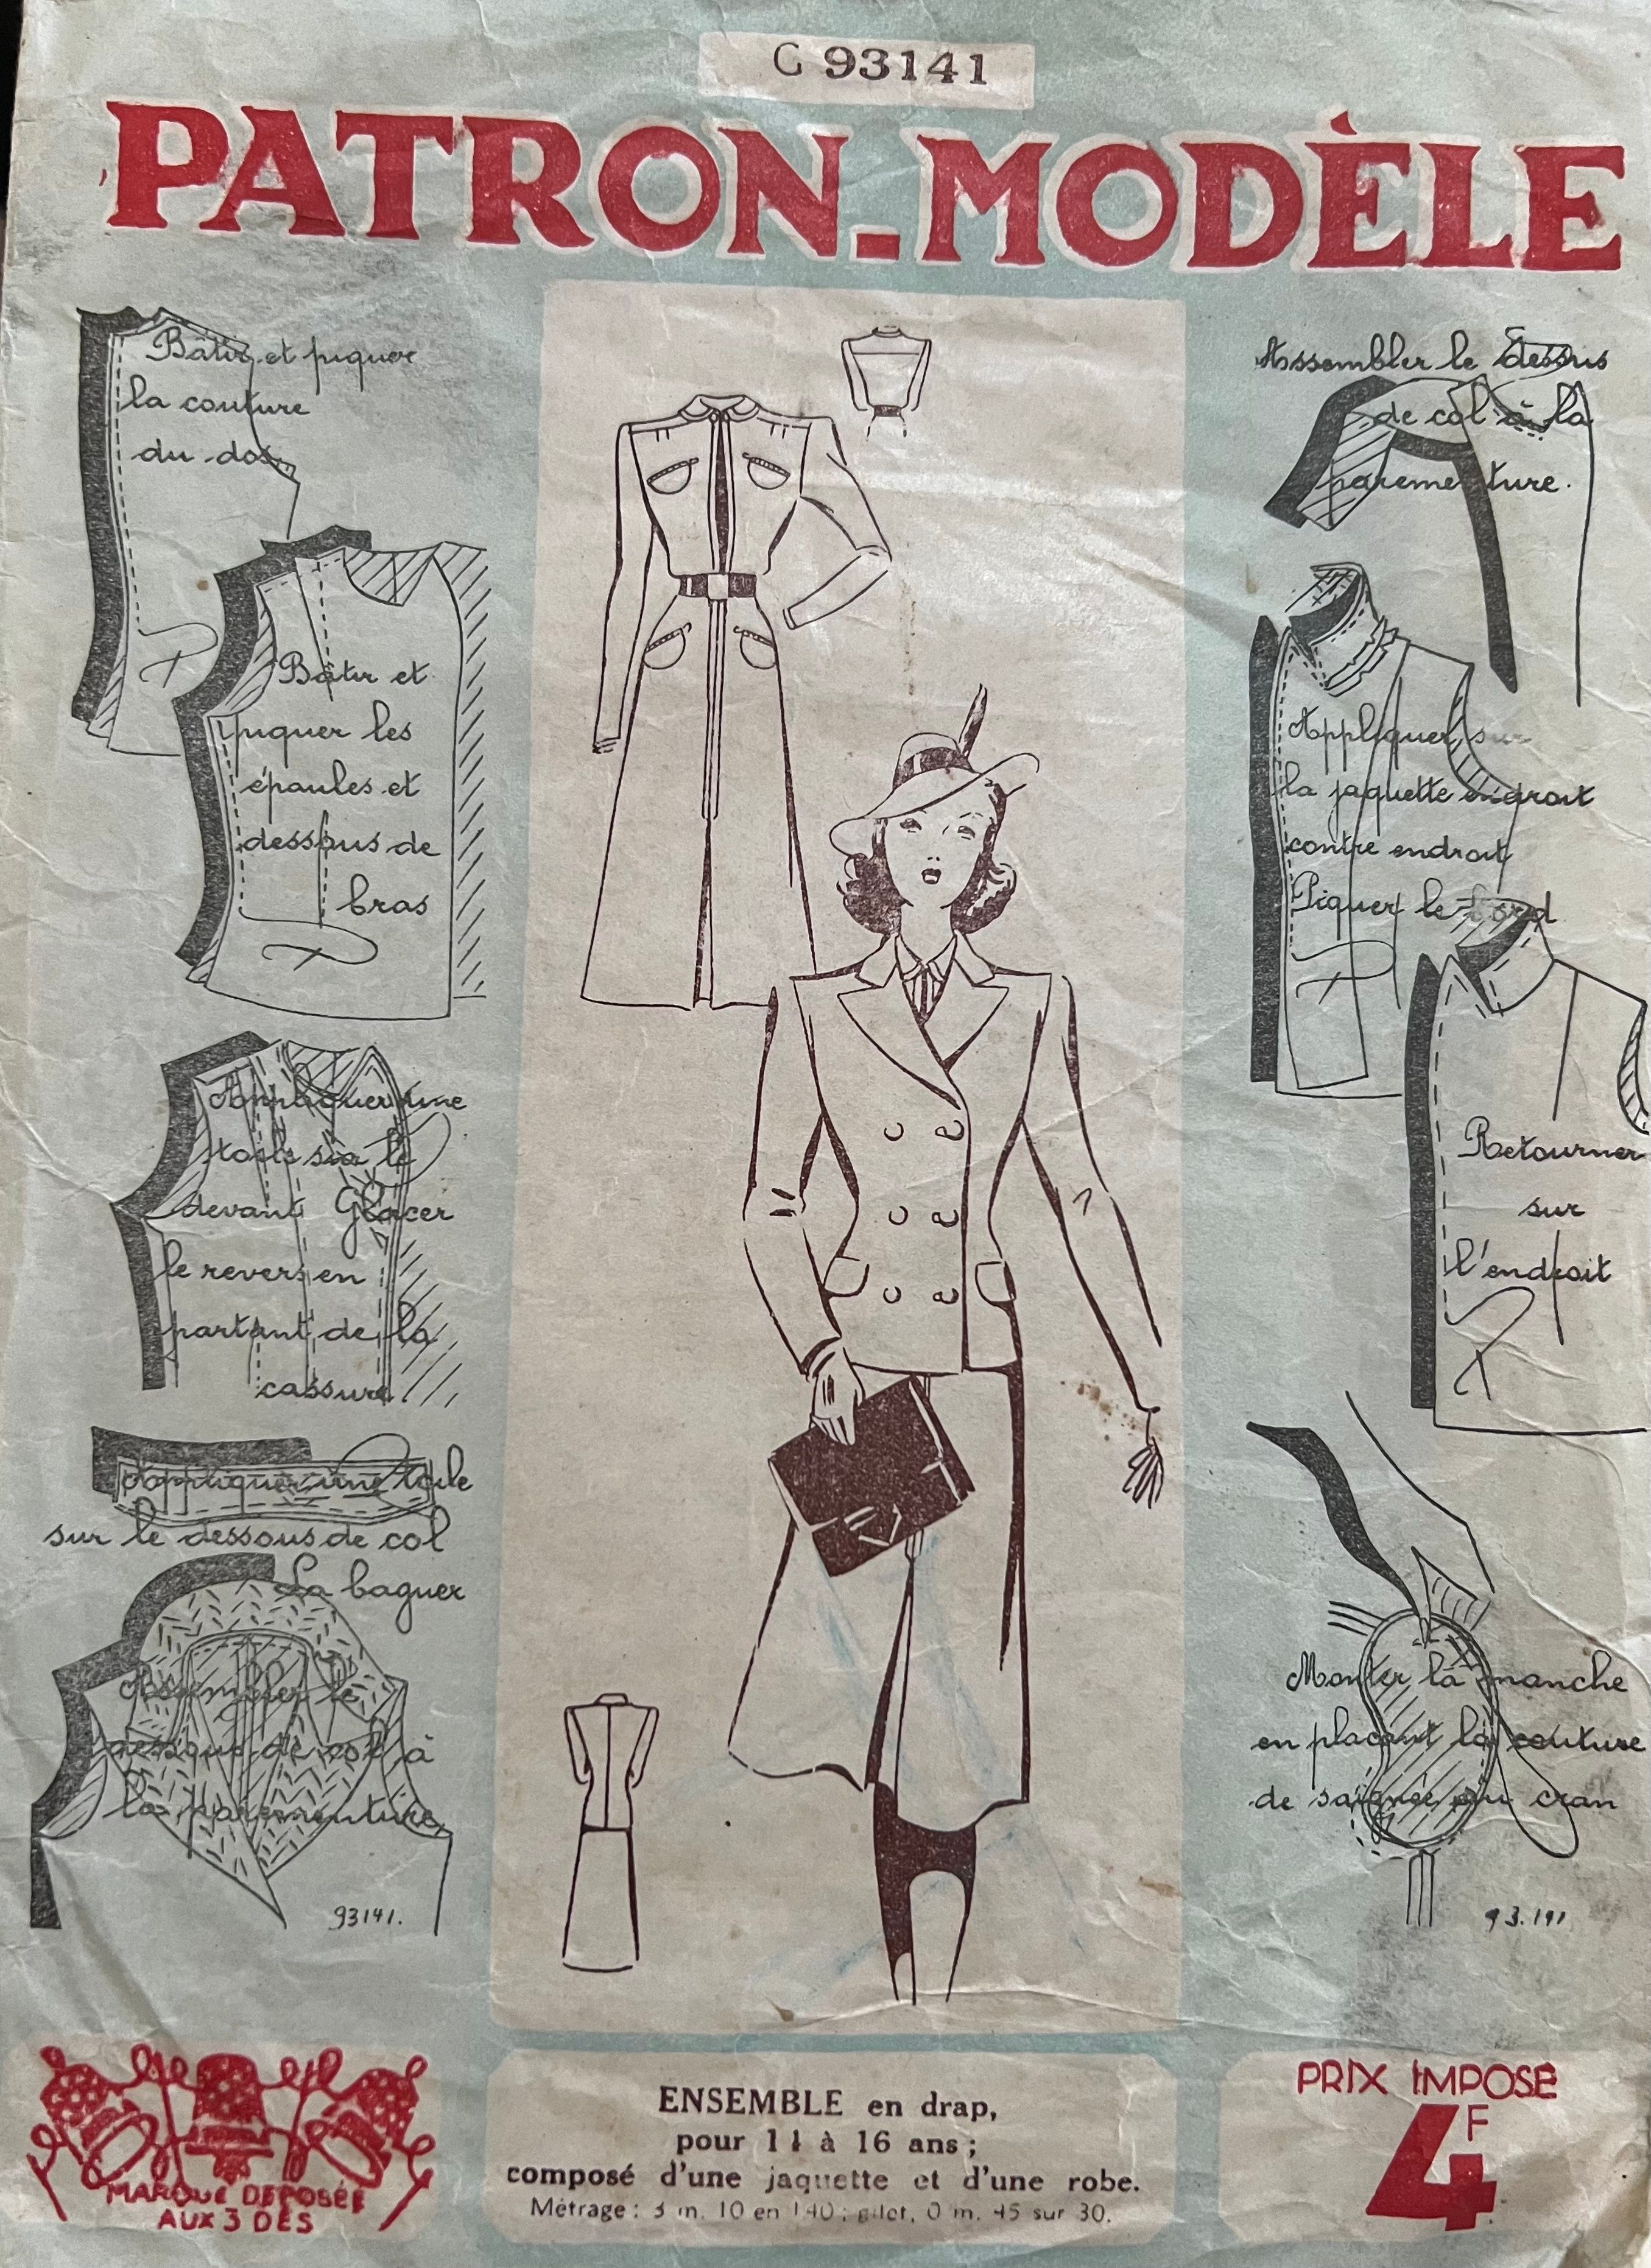 G 93141
PATRON-MODÈLE
Bâtir et piquer
la couture
du dos
Bâtir et
piquer les
épaules et
dessous de
bras
Appliquer une
toile sur le
devant Glacer
le revers en
partant de la
cassure
Appliquer une toile
sur le dessous de col
La baguer
Assembler le
dessous de col à
la parementure
93141.
Assembler le dessus
de col à la
parementure.
Appliquer sur
la jaquette endroit
contre endroit
Piquer le bord
Retourner
sur
l'endroit
Monter la manche
en placant la couture
de saignée au cran
MARQUE DEPOSÉE
AUX 3 DES
ENSEMBLE en drap,
pour à 16 ans ;
composé d'une jaquette et d'une robe.
Métrage : 3 m. 10 en 140 ; gilet, 0 m. 45 sur 30.
PRIX IMPOSÉ
4F